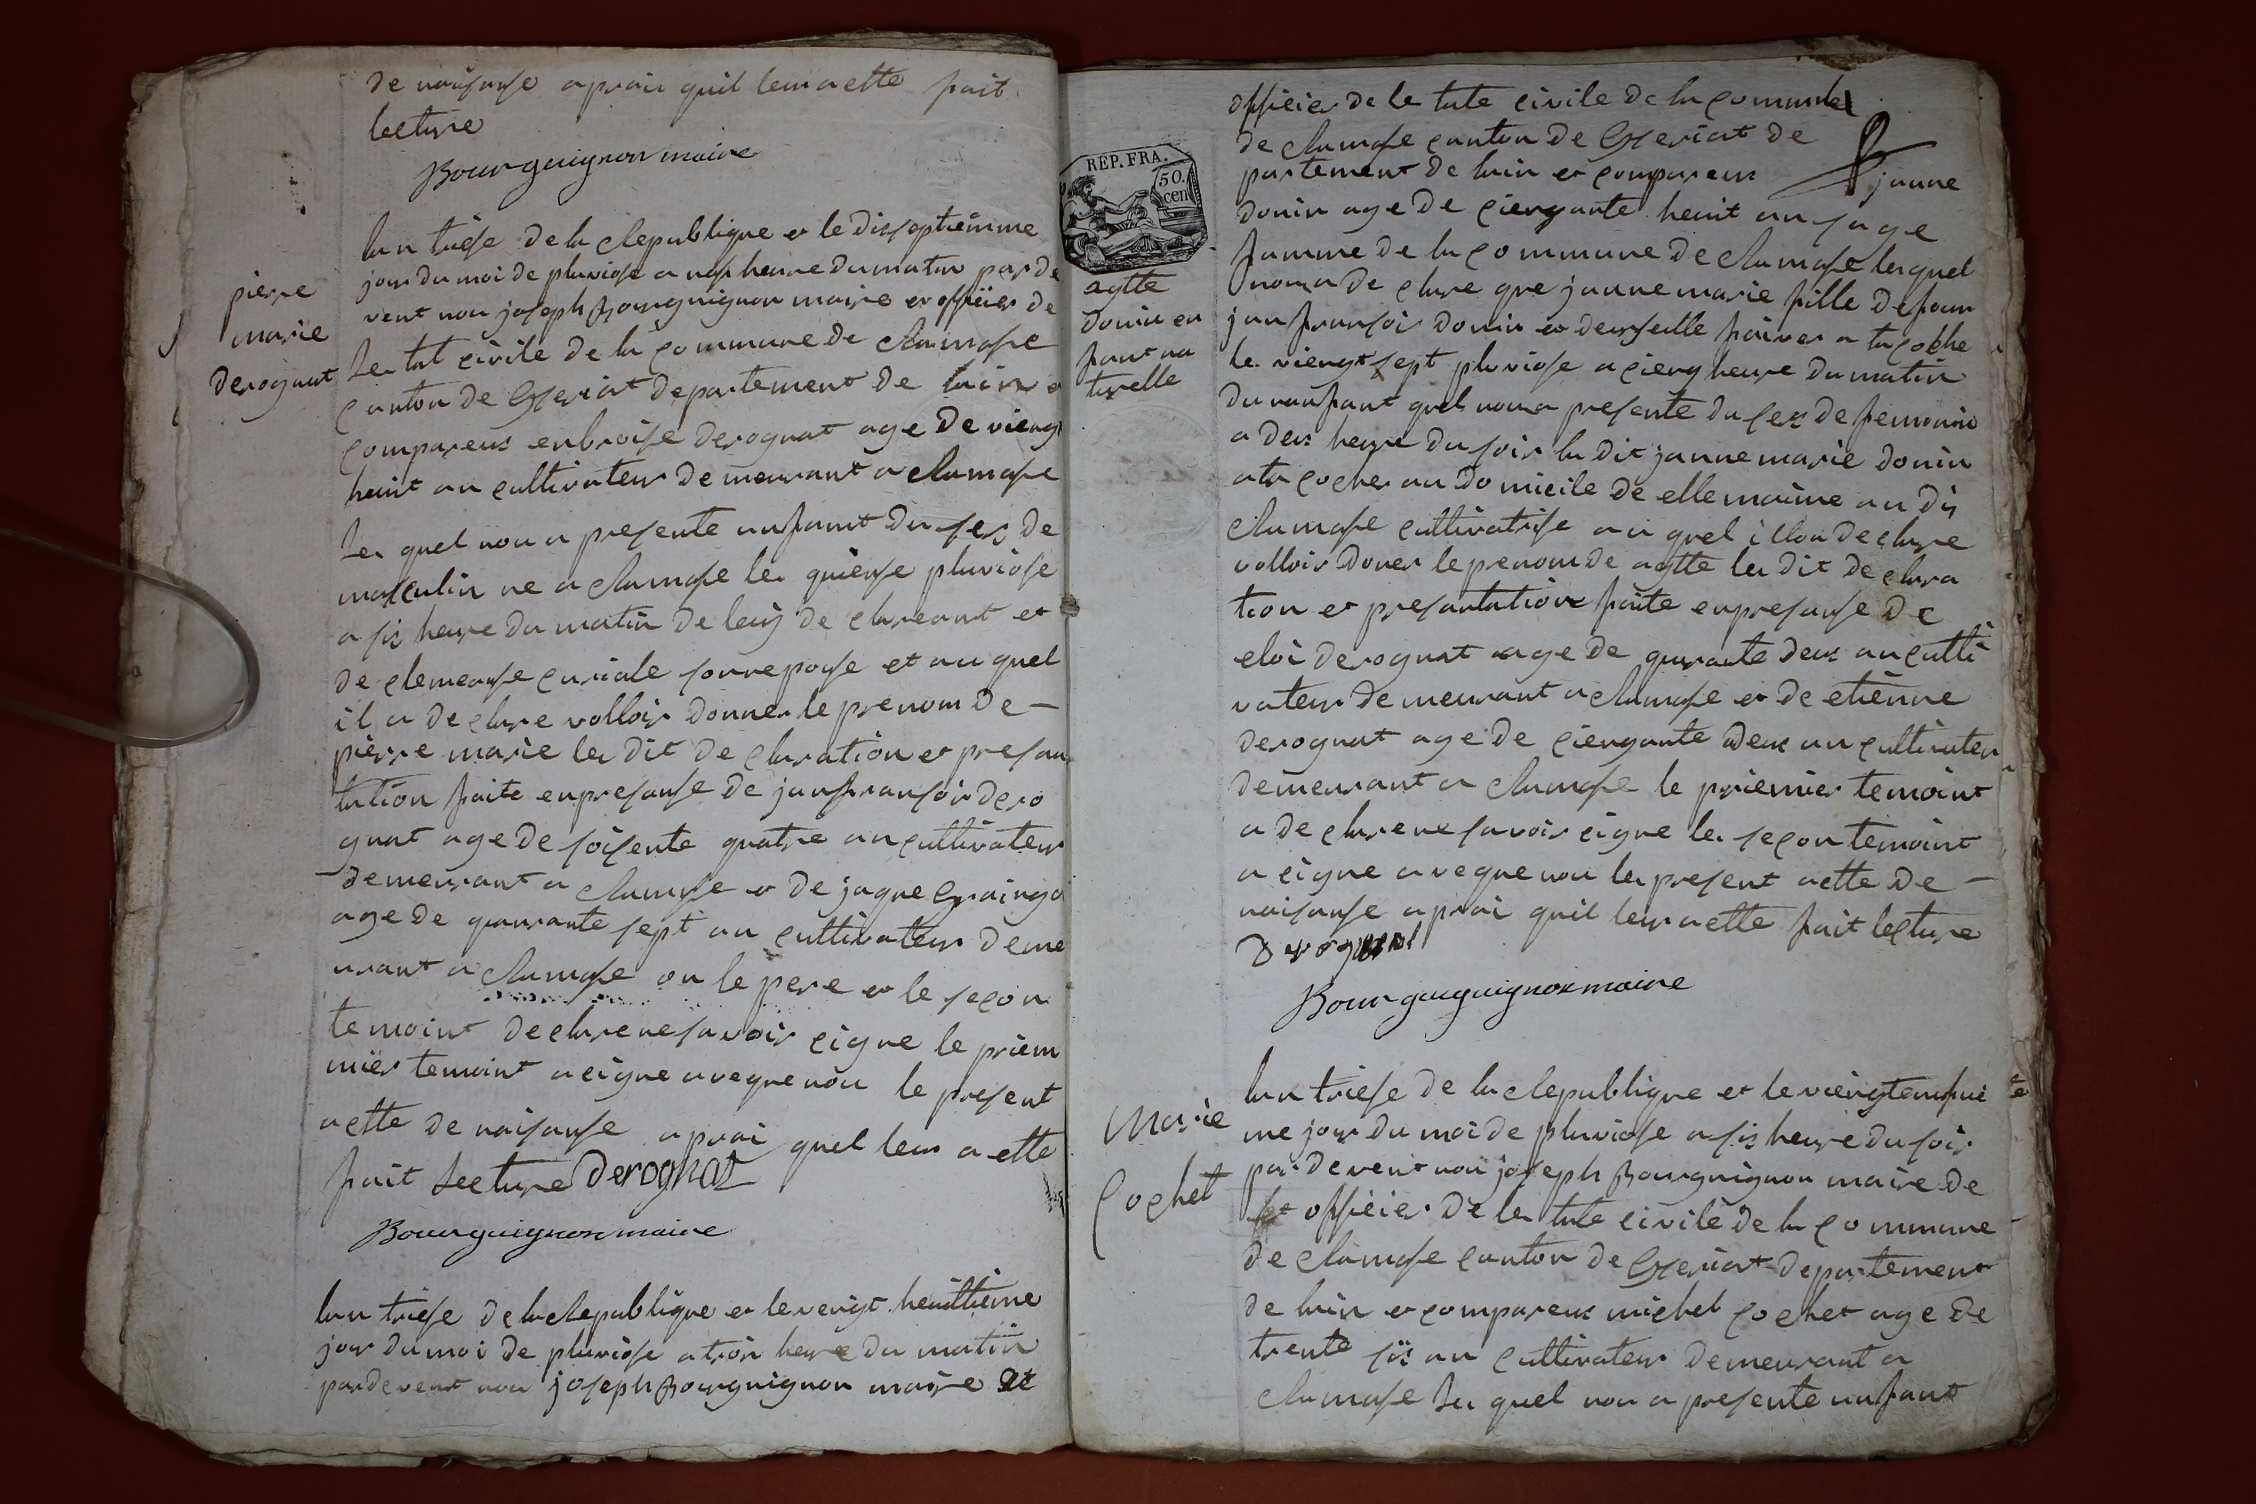 de naisanse aprais quil leur a ette fait
lecture
Bourguignon maire
pierre
marie
derognat
lan triese de la Republique et le disseptiemme
jour du moi de pluviose a nef heure du matin par de
vent nou joseph Bourguignon maire et officier de
le tat civile de la commune de
canton de Ceseriat departement de lain et
compareus enbroise derognat age de viengt
heuit an cultivateur demeurant a
le quel nou a presente unfant du sex de
masculin ne a le quiense pluviose
a sis heure du matin de luis declareant et
de clemense curiale son nepouse et au quel
il a declare volloir donner le prenom de -
pierre marie le dit declaration et presan
tation faite enpresanse de jan fransois dero
gnat age de soisente quatre an cultivateur
demeurant a et de jaque
age de quarante sept an cultivateur deme
urant a ou le pere et le secon
temoint declare ne savoir cigne le priem
mier temoint a cigne aveque nou le present
actte de naisanse aprai quel leur a ette
fait lecture Derognat
Bourguignon maire
lan triese de la Republique et le vengt heuittieme
jour du moi de pluviose a trois heure du matin
par devent nou joseph Bourguignon maire et
REP. FRA.
50.
cen
agtte
donin en
fant na
turelle
officier de le tate civile de la commune
de canton de Ceseriat de
partement de lain et compareus janne
donin age de ciengante heuit an sage
famme de la commune de lequel
nou a declare que janne marie fille de feu
jan fransois donin et de a la coche
le viengt sept pluviose a cieng heure du matin
du nunfant quel nou a presente du sex de femenin
a deus heure du soir la dit janne marie donin
a la coche au domicile de elle maime au dis
cultivatrise au quel il lon declare
volloir doner le prenom de agtte le dit declara
tion et presantation faite enpresanse de
eloi derognat age de quarante deus an culti
vateur demeurant a et de etienne
derognat age de ciengante deus an cultivateur
demeurant a le priemier temoint
a declare ne savoir cigne le secon temoint
a cigne aveque nou le present actte de -
naisanse aprai quil leur a ette fait lecture
Derognat
Bourguignon maire
Marie
Cochet
lan triese de la Republique et le
me jour du moi de pluviose a sis heure du soir
par devent nou joseph Bourguignon maire de
et officier de le tate civile de la commune
de canton de Ceseriat departement
de lain et compareus michel cochet age de
trente sis an cultivateur demeurant a
le quel nou a presente unfant